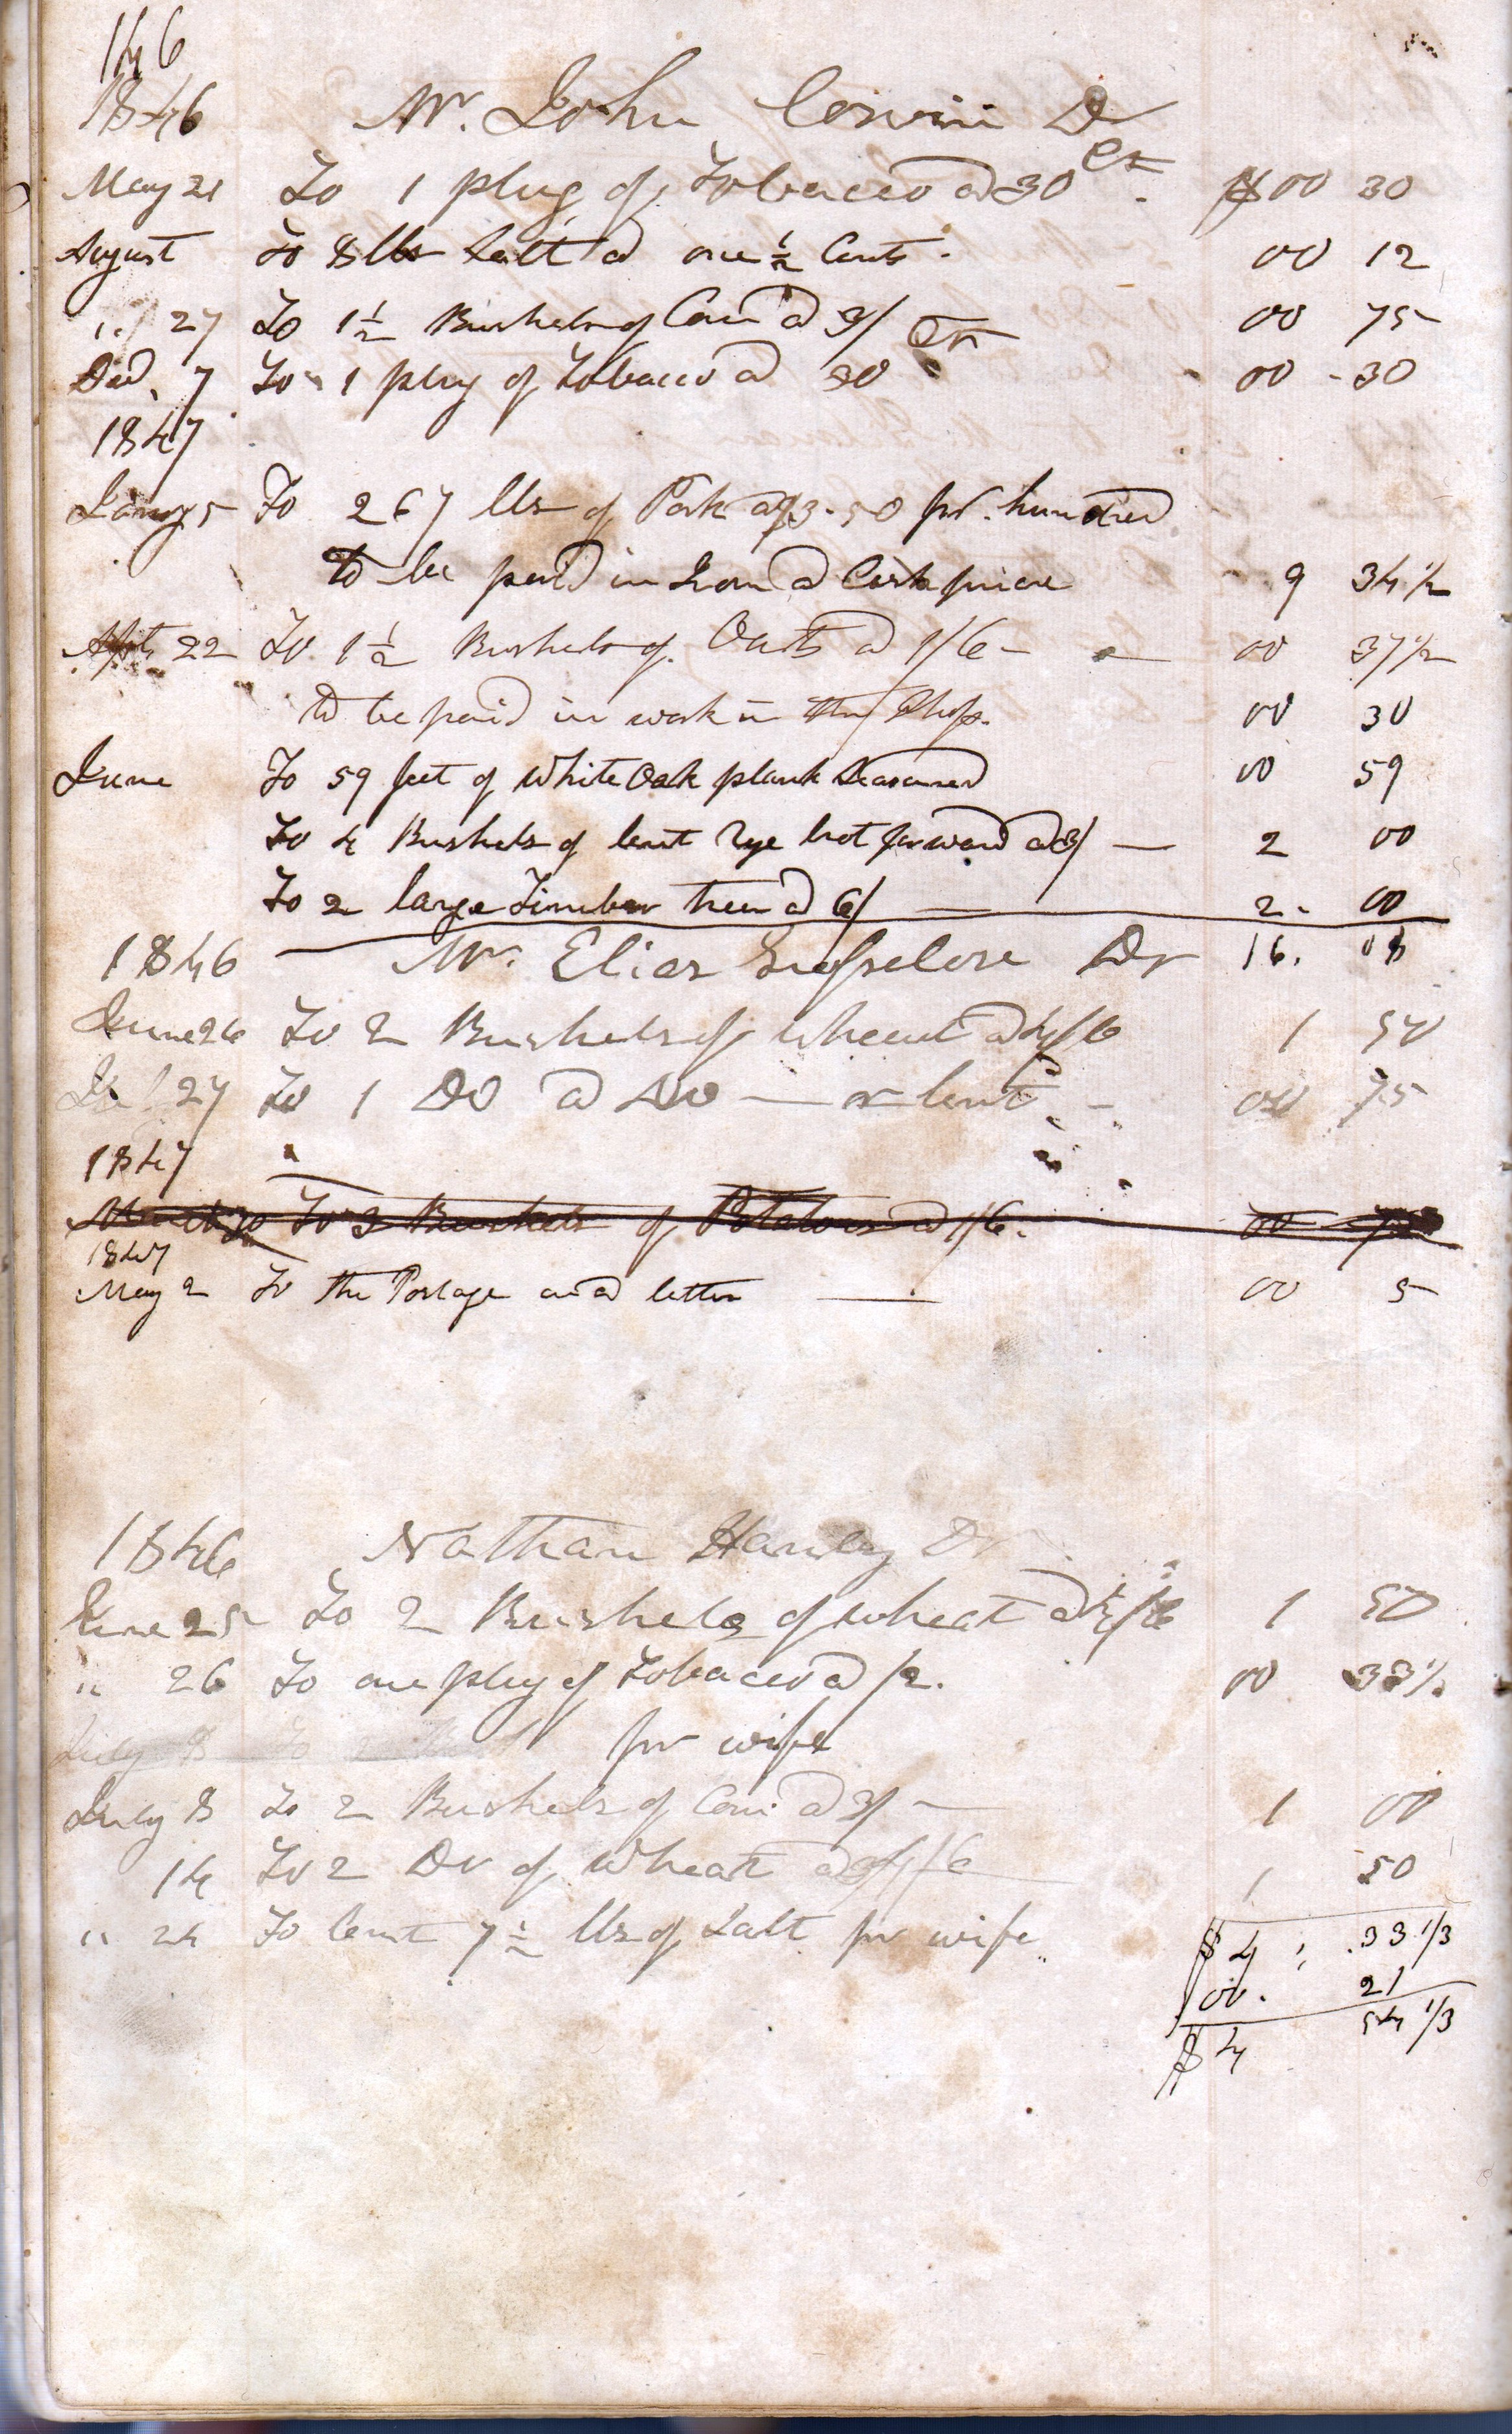 146
1846 Mr. John Corwin Dr
May 21 To 1 plug of Tobacco a 30 cts. $ 00 30
August To 8 lbs Salt a one ½ Cents. 00 12
" 27 To 1 ½ Bushels of Corn a 3/ 00 75
Ded. 7 To 1 plug of Tobacco a 30 00 - 30
1847
Janry 5 To 267 lbs of Pork a $3-50 pr. hundred
to be paid in Iron a Cash price 9 34 ½
22 To 1 ½ Bushels of Oats a 1/6 - 00 37 ½
to be paid in work in the Shop. 00 30
June To 59 feet of White Oak plank Seasoned 00 59
To 4 Bushels of lent Rye brot forward a 3/ — 2 00
To 2 large Timber trees a 6/ — 2. 00
1846 Mr. Elias Dr 16. 08
June 26 To 2 Bushels of wheat a 4/6 1 50
27 To 1 Do a Do — or lent. - 00 75
1847
March 30 To 3 Bushels of Potatoes a 1/6. 00 75
1847
May 2 To the Postage on a letter — 00 5
1846 Nathan Hanley Dr
June 25 To 2 Bushels of wheat a 4/6 1 50
" 26 To one plug of Tobacco a /2. 00 33 ⅓
July 8 To 2 for wife
July 8 To 2 Bushels of Corn a 3/ — 1 00
14 To 2 Do of Wheat a 4/6 1 50
" 24 To lent 7 ½ lbs of Salt for wife $ 4 . 33 1/3
00. 21
$ 4 54 1/3